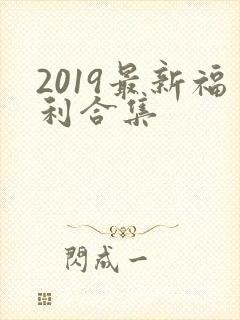 2019最新福
利合集
閃成一